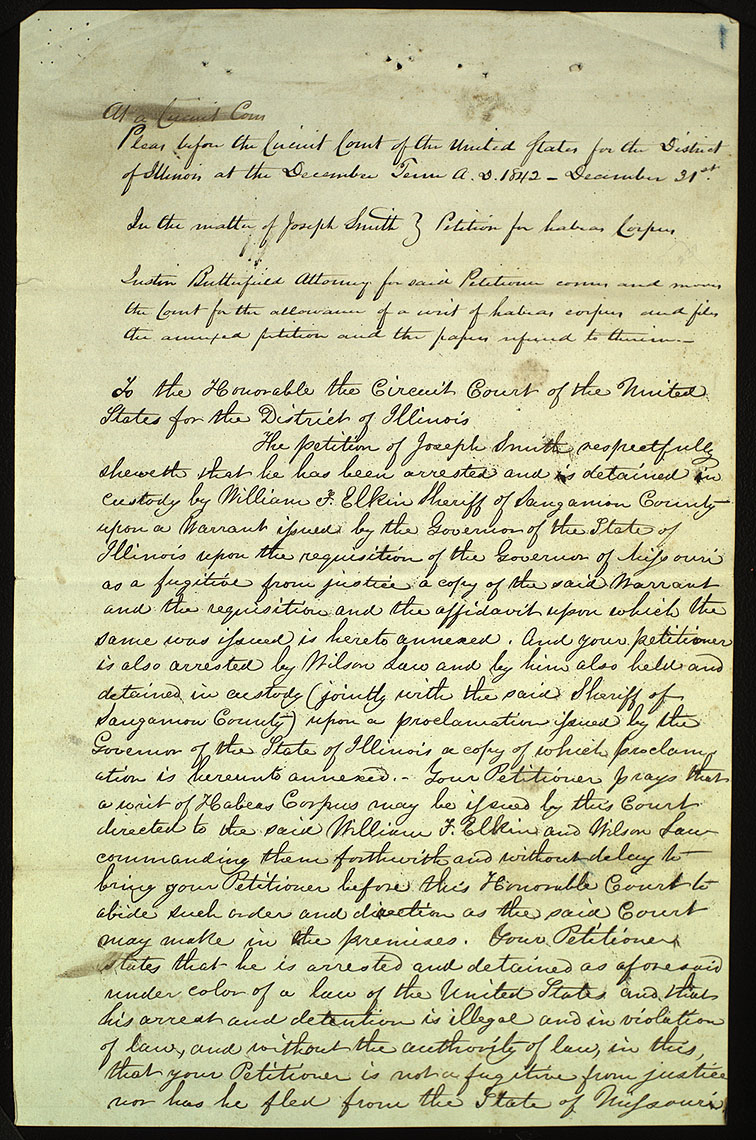 At a Circuit Cour
Pleas before the Circuit Court of the United States for the District
of Illinois at the December Term A. D. 1842 – December 31st.
In the matter of Joseph Smith } Petition for habeas Corpus
Justin Butterfield Attorney for said Petitioner comes and moves
the Court for the allowance of a writ of habeas corpus and files
the annexed petition and the papers refered to therein.—
To the Honorable the Circuit Court of the United
States for the District of Illinois
The petition of Joseph Smith respectfully
sheweth that he has been arrested and is detained in
custody by William F. Elkin Sheriff of Sangamon County
upon a Warrant issued by the Governor of the State of
Illinois upon the requisition of the Governor of Missouri
as a fugitive from justice a copy of the said Warrant
and the requisition and the affidavit upon which the
same was issued is hereto annexed. And your petitioner
is also arrested by Wilson Law and by him also held and
detained in custody (jointly with the said Sheriff of
Sangamon County) upon a proclamation issued by the
Governor of the State of Illinois a copy of which proclam
ation is hereunto annexed.– Your Petitioner prays that
a writ of Habeas Corpus may be issued by this Court
directed to the said William F. Elkin and Wilson Law
commanding them forthwith and without delay to
bring your Petitioner before this Honorable Court to
abide such order and direction as the said Court
may make in the premises. Your Petitioner
states that he is arrested and detained as aforesaid
under color of a law of the United States and that
his arrest and detention is illegal and in violation
of law, and without the authority of law, in this,
that your Petitioner is not a fugitive from justice
nor has he fled from the State of Missouri